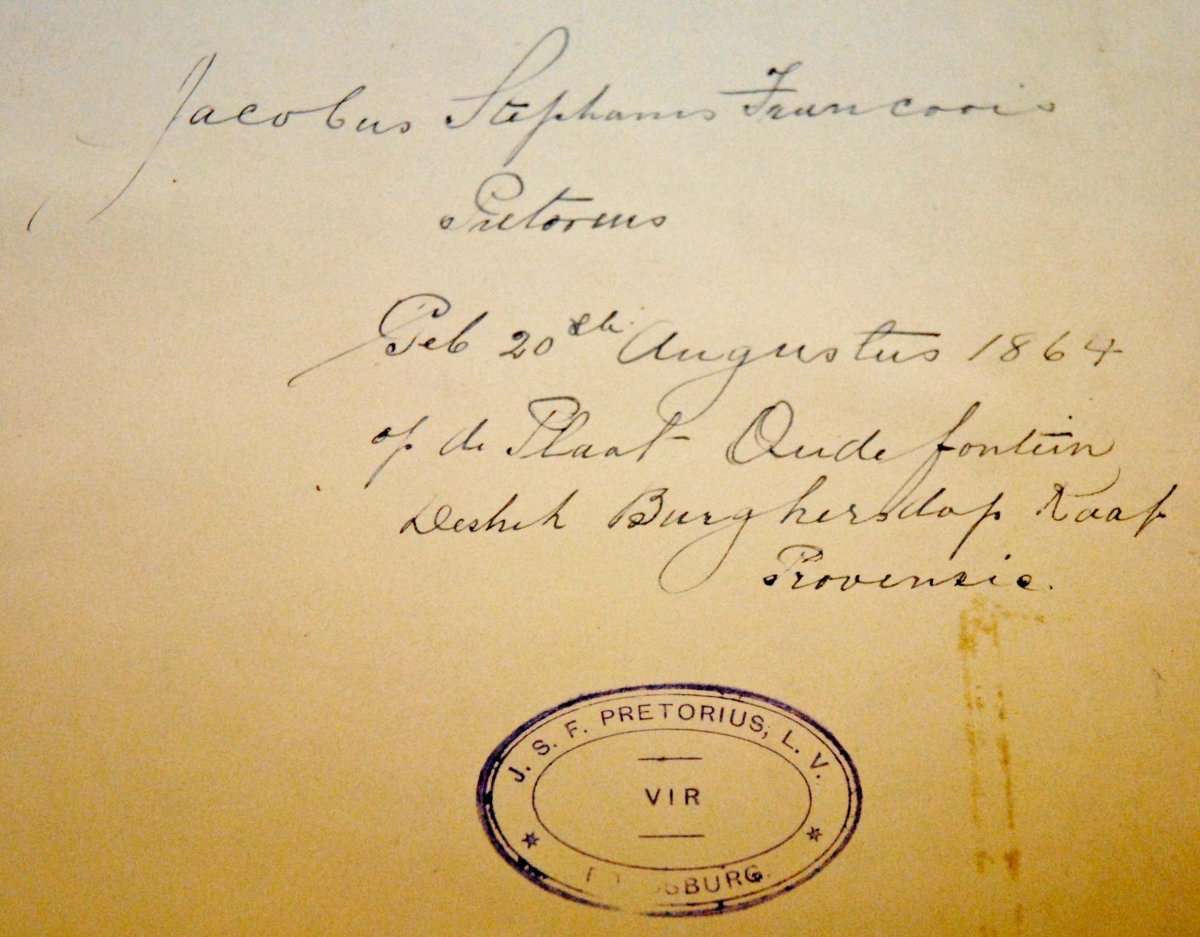 Jacobus Stephanus Francoois
Pretorius
Geb 20 ste Augustus 1864
op de Plaat Oudefontein
Burghersdop Kaap
Provinzie.
J. S. F. PRETORIUS, L. V.
VIR